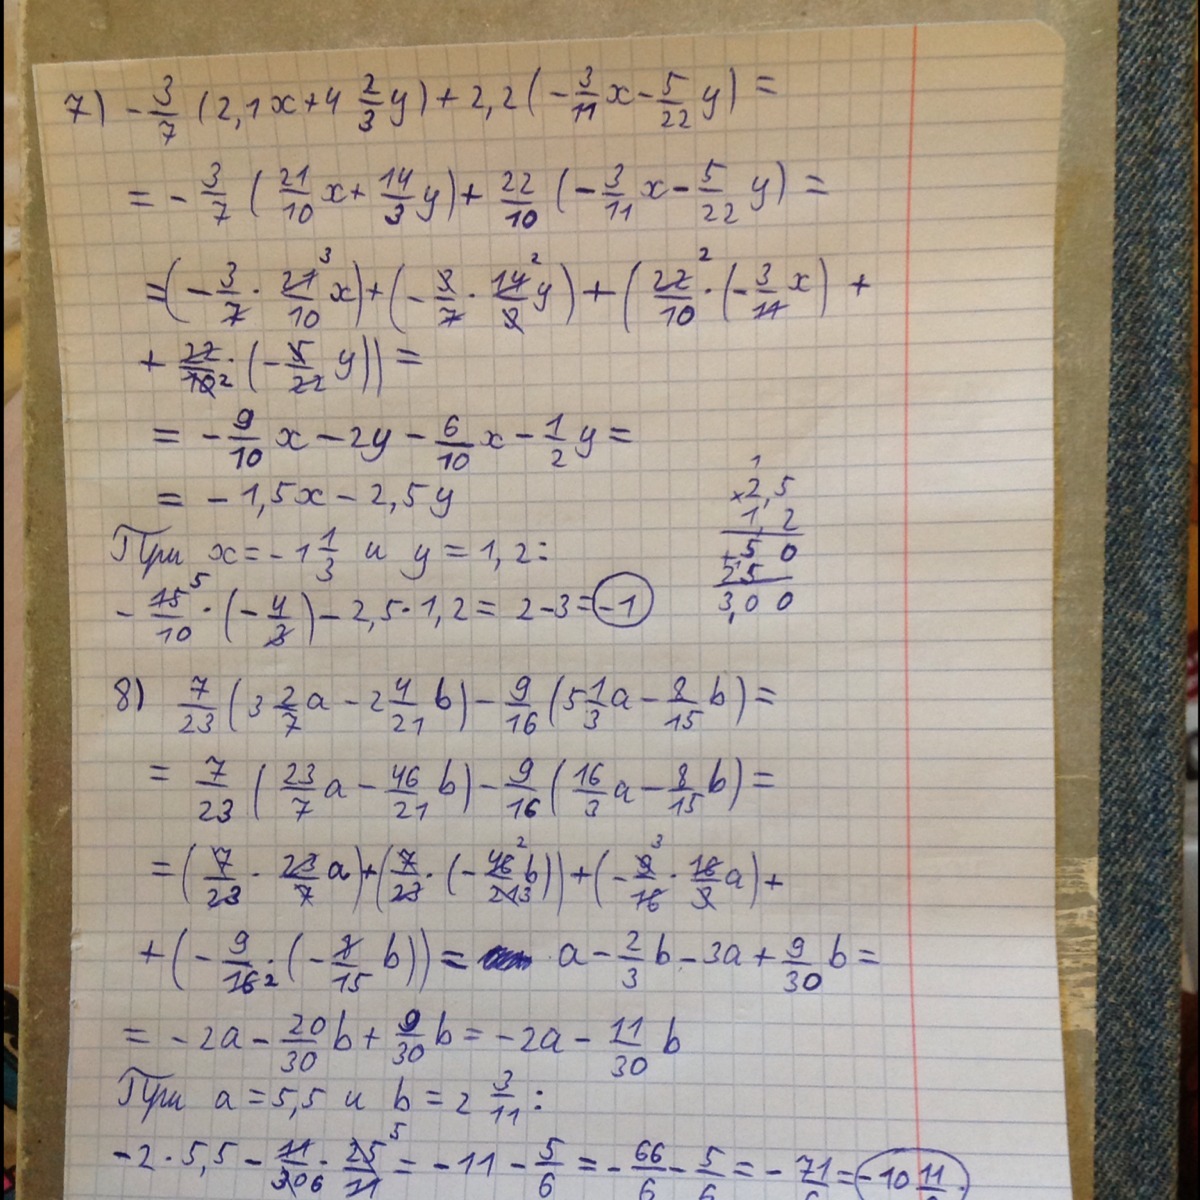 7) -3/7 (2,1x+4 2/3 y) + 2,2 (-3/11 x - 5/22 y) =
= -3/7 (21/10 x + 14/3 y) + 22/10 (-3/11 x - 5/22 y) =
= (-3/7 · 21³/10 x) + (-3/7 · 14²/3 y) + (22²/10 · (-3/11 x) +
+ 22/10₂ · (-5/22 y)) =
= -9/10 x - 2y - 6/10 x - 1/2 y =
= -1,5x - 2,5y
При x = -1 1/3 и y = 1,2:
-15⁵/10 · (-4/3) - 2,5·1,2 = 2-3 = -1
1
×2,5
1,2
+50
25
3,00
8) 7/23 (3 2/7 a - 2 4/21 b) - 9/16 (5 1/3 a - 8/15 b) =
= 7/23 (23/7 a - 46/21 b) - 9/16 (16/3 a - 8/15 b) =
= (7/23 · 23/7 a) + (7/23 · (-46²/21₃ b)) + (-9³/16 · 16/3 a) +
+ (-9/16₂ · (-8/15 b)) = a - 2/3 b - 3a + 9/30 b =
= -2a - 20/30 b + 9/30 b = -2a - 11/30 b
При a = 5,5 и b = 2 3/11:
-2·5,5 - 11/30₆ · 25⁵/11 = -11 - 5/6 = -66/6 - 5/6 = -71/6 = -10 11/6